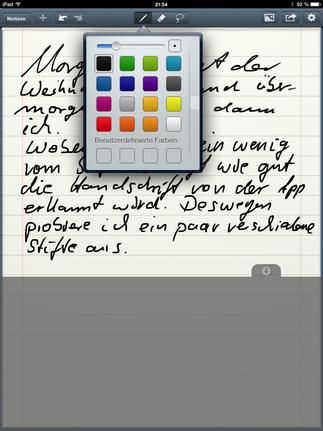 iPad 21:54 92 %
Notizen
Morg t der
Weihn nd über-
morge dann
ich.
Wobei ein wenig
vom S wie gut
die Handschrift von der App
erkannt wird. Deswegen
probiere ich ein paar verschiedene
Stifte aus.
Benutzerdefinierte Farben